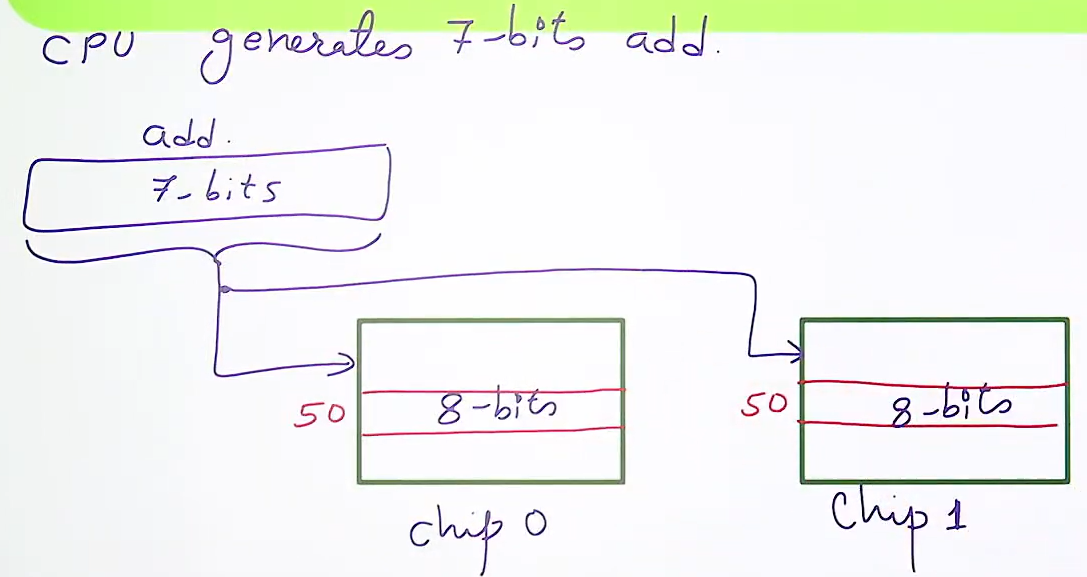 CPU generates 7-bits add.
add.
7-bits
50
8-bits
50
8-bits
chip 0
chip 1